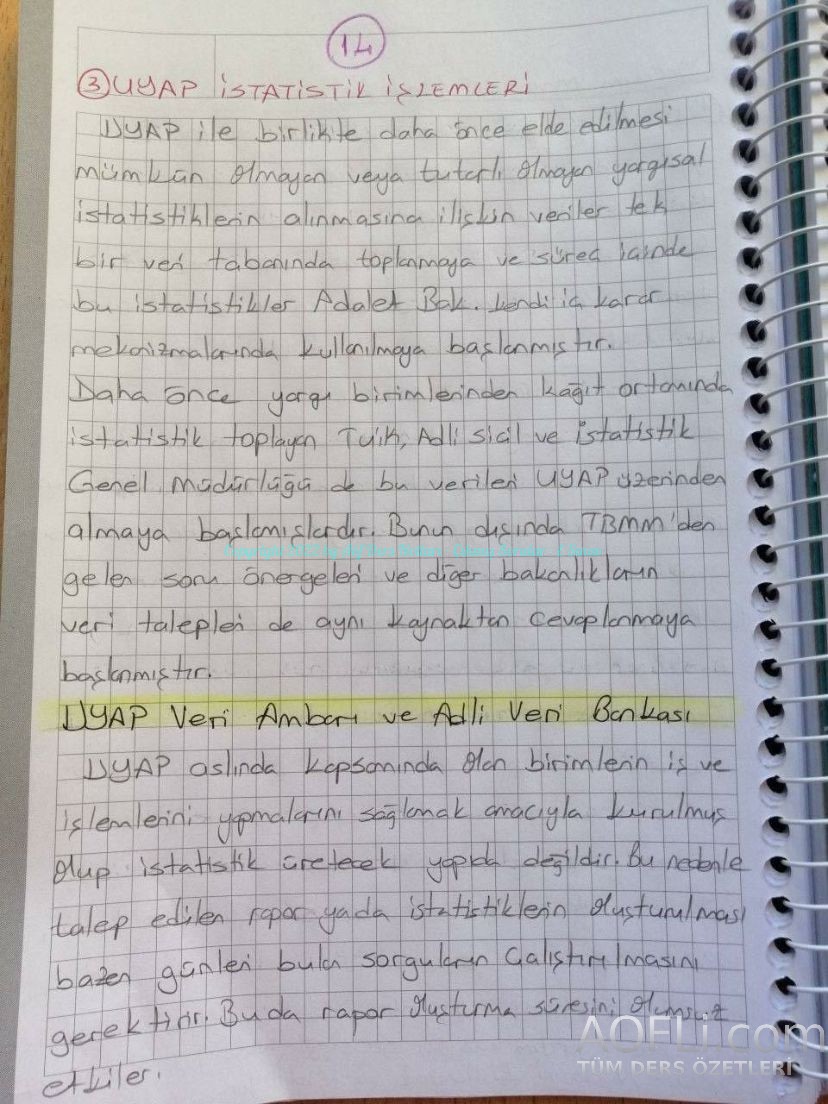 14
③ UYAP İSTATİSTİK İŞLEMLERİ
UYAP ile birlikte daha önce elde edilmesi
mümkün olmayan veya tutarlı olmayan yargısal
istatistiklerin alınmasına ilişkin veriler tek
bir veri tabanında toplanmaya ve süreç içinde
bu istatistikler Adalet Bak. kendi iç karar
mekanizmalarında kullanılmaya başlanmıştır.
Daha önce yargı birimlerinden kağıt ortamında
istatistik toplayan Tuik, Adli sicil ve istatistik
Genel müdürlüğü de bu verileri UYAP üzerinden
almaya başlamışlardır. Bunun dışında TBMM'den
gelen soru önergeleri ve diğer bakanlıkların
veri talepleri de aynı kaynaktan cevaplanmaya
başlanmıştır.
UYAP Veri Ambarı ve Adli Veri Bankası
UYAP aslında kapsamında olan birimlerin iş ve
işlemlerini yapmalarını sağlamak amacıyla kurulmuş
olup istatistik üretecek yapıda değildir. Bu nedenle
talep edilen rapor yada istatistiklerin oluşturulması
bazen günleri bulan sorguların çalıştırılmasını
gerektirir. Bu da rapor oluşturma süresini olumsuz
etkiler.
AOFLi.com
TÜM DERS ÖZETLERİ